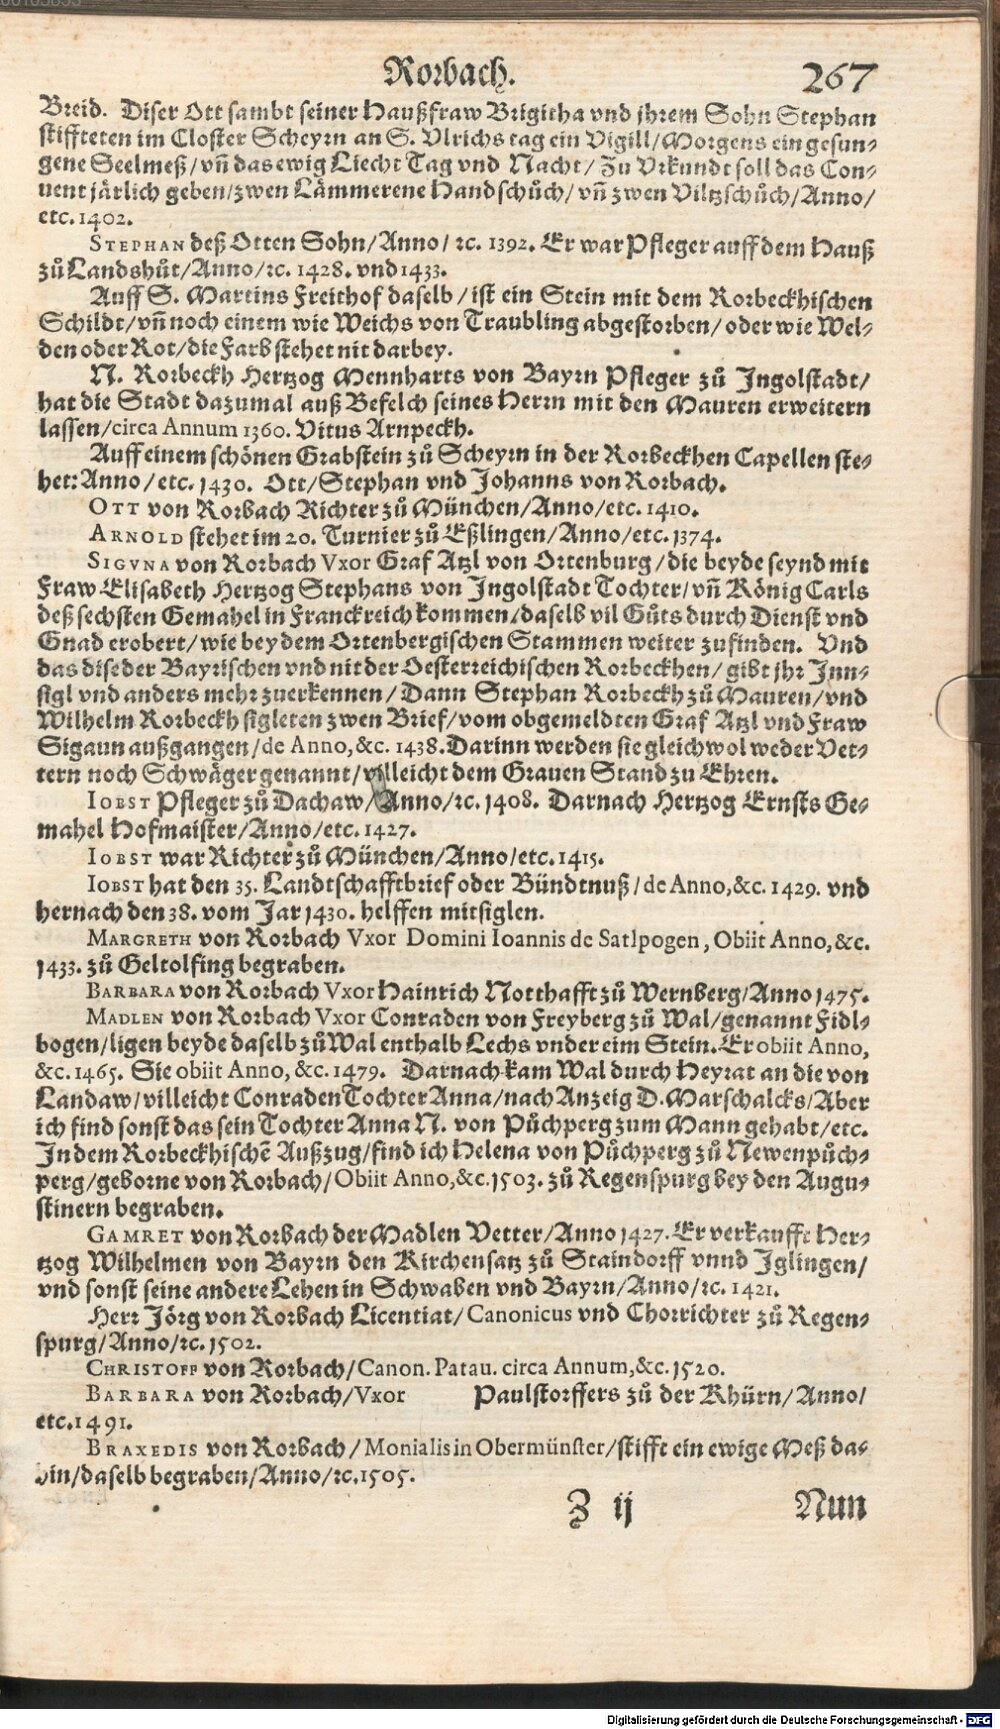 Rorbach. 267
Breid. Diser Ott sambt seiner Haußfraw Brigitha vnd jhrem Sohn Stephan
stiffteten im Closter Scheyrn an S. Vlrichs tag ein Vigill/Morgens ein gesun⸗
gene Seelmeß/vñ das ewig Liecht Tag vnd Nacht/ Zu Vrkundt soll das Con⸗
uent järlich geben/zwen Lämmerene Handschůch/ vñ zwen Viltzschůch/Anno/
etc. 1402.
STEPHAN deß Otten Sohn/Anno/ ꝛc. 1392. Er war Pfleger auff dem Hauß
zů Landshůt/Anno/ꝛc. 1428. vnd 1433.
Auff S. Martins Freithof daselb/ist ein Stein mit dem Rorbeckhischen
Schildt/vñ noch einem wie Weichs von Traubling abgestorben/ oder wie Wel⸗
den oder Rot/die Farb stehet nit darbey.
N. Rorbeckh Hertzog Mennharts von Bayrn Pfleger zů Ingolstadt/
hat die Stadt dazumal auß Befelch seines Herrn mit den Mauren erweitern
lassen/circa Annum 1360. Vitus Arnpeckh.
Auff einem schönen Grabstein zů Scheyrn in der Rorbeckhen Capellen ste⸗
het: Anno/ etc. 1430. Ott/Stephan vnd Johanns von Rorbach.
OTT von Rorbach Richter zů München/Anno/etc. 1410.
ARNOLD stehet im 20. Turnier zů Eßlingen/Anno/etc. 1374.
SIGVNA von Rorbach Vxor Graf Atzl von Ortenburg/die beyde seynd mit
Fraw Elisabeth Hertzog Stephans von Ingolstadt Tochter/vñ König Carls
deß sechsten Gemahel in Franckreich kommen/daselb vil Gůts durch Dienst vnd
Gnad erobert/wie bey dem Ortenbergischen Stammen weiter zufinden. Vnd
das dise der Bayrischen vnd nit der Oesterreichischen Rorbeckhen/ gibt jhr Inn⸗
sigl vnd anders mehr zuerkennen/Dann Stephan Rorbeckh zů Mauren/vnd
Wilhelm Rorbeckh sigleten zwen Brief/vom obgemeldten Graf Atzl vnd Fraw
Sigaun außgangen/de Anno,&c. 1438. Darinn werden sie gleichwol weder Vet⸗
tern noch Schwäger genannt/villeicht dem Grauen Stand zu Ehren.
IOBST Pfleger zů Dachaw/Anno/ꝛc. 1408. Darnach Hertzog Ernsts Ge⸗
mahel Hofmaister/Anno/etc. 1427.
IOBST war Richter zů München/Anno/etc. 1415.
IOBST hat den 35. Landtschafftbrief oder Bündtnuß/de Anno,&c. 1429. vnd
hernach den 38. vom Jar 1430. helffen mitsiglen.
MARGRETH von Rorbach Vxor Domini Ioannis de Satlpogen, Obiit Anno,&c.
1433. zů Geltolfing begraben.
BARBARA von Rorbach Vxor Hainrich Notthafft zů Wernberg/Anno 1475.
MADLEN von Rorbach Vxor Conraden von Freyberg zů Wal/genannt Fidl⸗
bogen/ligen beyde daselb zů Wal enthalb Lechs vnder eim Stein. Er obiit Anno,
&c. 1465. Sie obiit Anno, &c. 1479. Darnach kam Wal durch Heyrat an die von
Landaw/villeicht Conraden Tochter Anna/nach Anzeig D. Marschalcks/Aber
ich find sonst das sein Tochter Anna N. von Půchperg zum Mann gehabt/etc.
In dem Rorbeckhischẽ Außzug/find ich Helena von Půchperg zů Newenpůch⸗
perg/geborne von Rorbach/Obiit Anno,&c. 1503. zů Regenspurg bey den Augu⸗
stinern begraben.
GAMRET von Rorbach der Madlen Vetter/Anno 1427. Er verkaufft Her⸗
tzog Wilhelmen von Bayrn den Kirchensatz zů Staindorff vnnd Iglingen/
vnd sonst seine andere Lehen in Schwaben vnd Bayrn/Anno/ꝛc. 1421.
Herr Jörg von Rorbach Licentiat/Canonicus vnd Chorrichter zů Regen⸗
spurg/Anno/ꝛc. 1502.
CHRISTOFF von Rorbach/Canon. Patau. circa Annum,&c. 1520.
BARBARA von Rorbach/Vxor Paulstorffers zů der Khürn/Anno/
etc. 1491.
BRAXEDIS von Rorbach/Monialis in Obermünster/stifft ein ewige Meß da⸗
hin/daselb begraben/Anno/ꝛc. 1505.
Z ij Nun
Digitalisierung gefördert durch die Deutsche Forschungsgemeinschaft - DFG